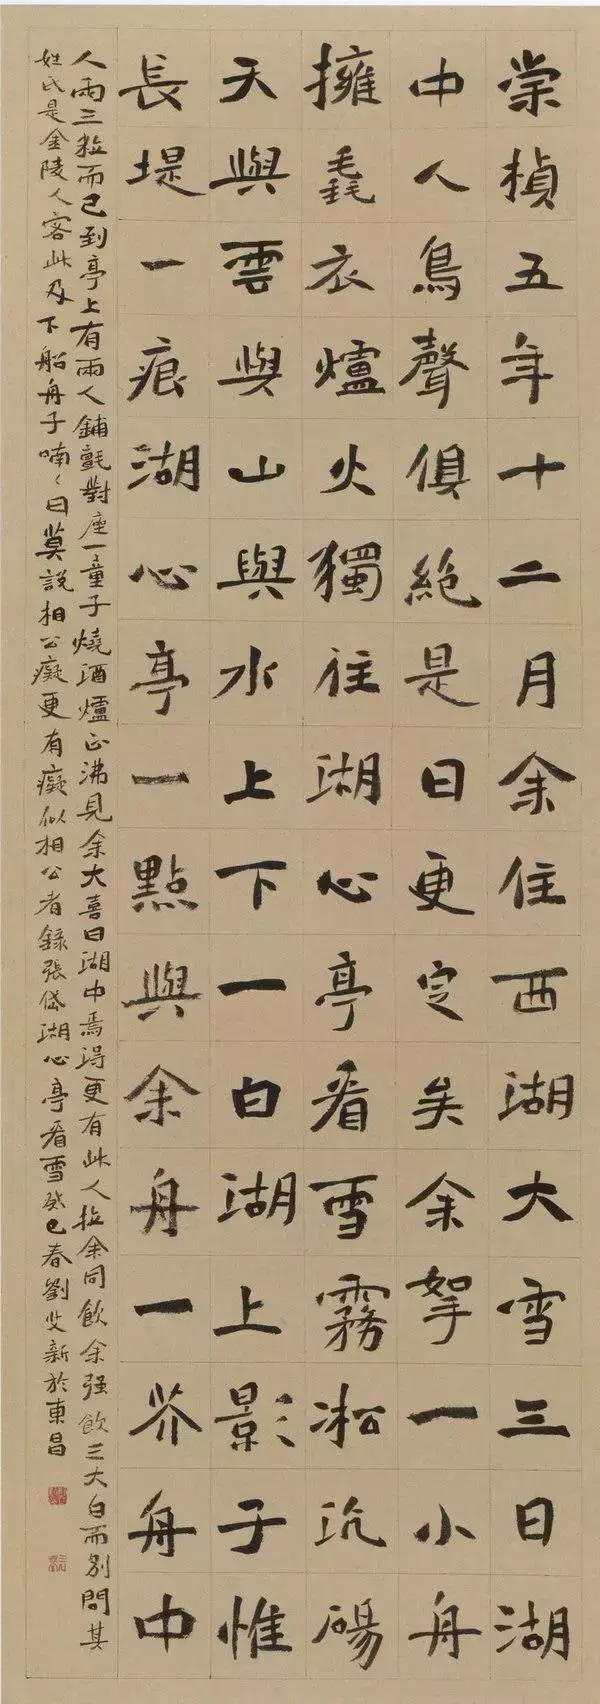 崇禎五年十二月余住西湖大雪三日湖
中人鳥聲俱絕是日更定矣余挐一小舟
擁毳衣爐火獨往湖心亭看雪霧凇沆碭
天與雲與山與水上下一白湖上影子惟
長堤一痕湖心亭一點與余舟一芥舟中
人兩三粒而已到亭上有兩人鋪氈對座一童子燒酒爐正沸見余大喜曰湖中焉得更有此人拉余同飲余强飲三大白而別問其
姓氏是金陵人客此及下船舟子喃〻曰莫說相公癡更有癡似相公者錄張岱湖心亭看雪癸巳春劉新於東昌